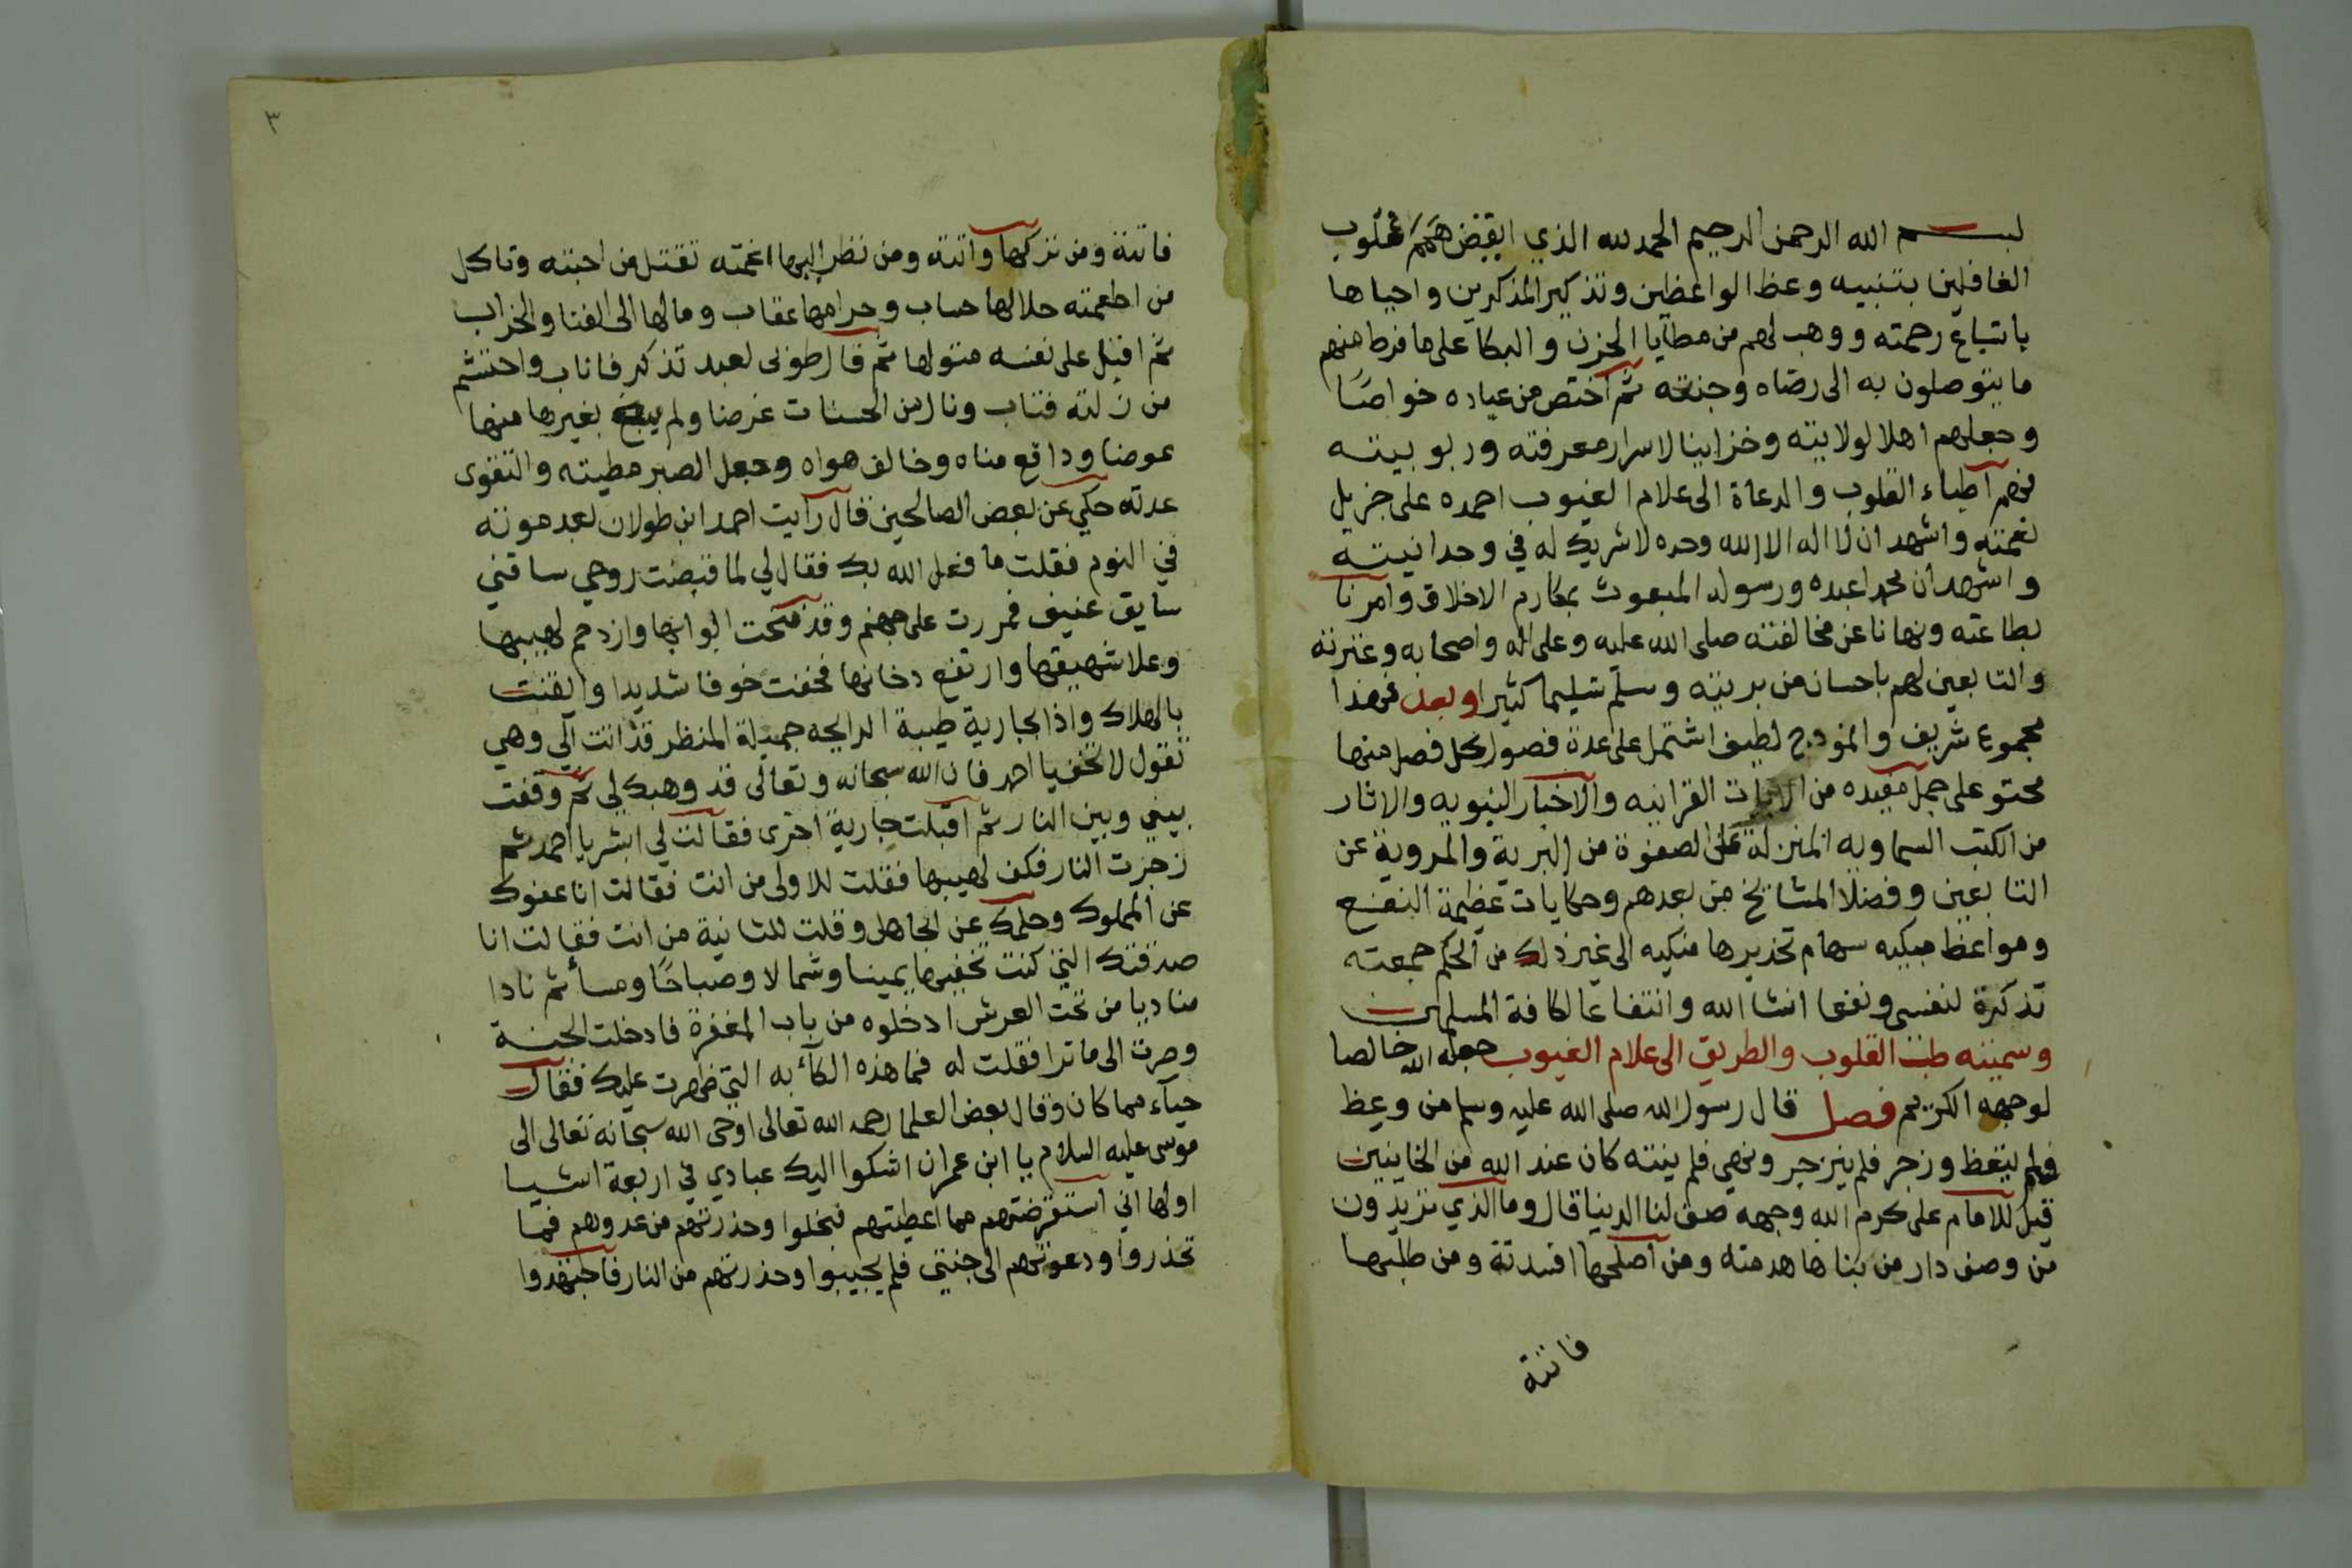 بسم الله الرحمن الرحيم الحمد لله الذي ايقض همم قلوب
الغافلين بتنبيه وعظ الواعظين وتذكير المذكرين واحياها
باتباع رحمته ووهب لهم من مطايا الحزن والبكا على ما فرط منهم
ما يتوصلون به الى رضاه وجنته ثم اختص من عباده خواصًا
وجعلهم اهلا لولايته وخزاينا لاسرار معرفته وربوبيته
فهم اطباء القلوب والدعاة الى علام الغيوب احمده على جزيل
نعمته واشهد ان لا اله الا الله وحده لا شريك له في وحدانيته
واشهد ان محمدا عبده ورسوله المبعوث بمكارم الاخلاق وامرنا
بطاعته ونهانا عن مخالفته صلى الله عليه وعلى اله واصحابه وعترته
والتابعين لهم باحسان من بريته وسلم تسليما كثيرا وبعد فهذا
مجموع شريف وانموذج لطيف اشتمل على عدة فصول كل فصل منها
محتو على جمل مفيده من الايات القرانيه والاخبار النبويه والاثار
من الكتب السماويه المنزلة على الصفوة من البرية والمروية عن
التابعين وفضلا المشايخ من بعدهم وحكايات عظيمة النفع
ومواعظ مبكيه سهام تحذيرها منكيه الى غير ذلك من الحكم جمعته
تذكرة لنفسي ونفعا انشا الله وانتفاعا لكافة المسلمين
وسميته طب القلوب والطريق الى علام الغيوب جعله الله خالصا
لوجهه الكريم فصل قال رسول الله صلى الله عليه وسلم من وعظ
فلم يتعظ وزجر فلم ينزجر ونهي فلم ينته كان عند الله من الخايبين
قيل للامام على كرم الله وجهه صف لنا الدنيا قال وما الذي تريدون
من وصف دار من بناها هدمته ومن اصلحها افسدته ومن طلبها
فاتته
٣
فاتته ومن تركها واتته ومن نظر اليها اعمته تقتل من احبته وتاكل
من اطعمته حلالها حساب وحرامها عقاب ومالها الى الفنا والخراب
ثم اقبل على نفسه متولها ثم قال طوبى لعبد تذكر فاناب واحتشم
من زلته فتاب ونال من الحسنات غرضا ولم يبتغ بغيرها منها
عوضا ودافع مناه وخالف هواه وجعل الصبر مطيته والتقوى
عدته حكي عن بعض الصالحين قال رايت احمد ابن طولان بعد موته
في النوم فقلت ما فعل الله بك فقال لي لما قبضت روحي ساقني
سايق عنيف فمررت على جهنم وقد فتحت ابوابها وازدحم لهيبها
وعلا شهيقها وارتفع دخانها فخفت خوفا شديدا وايقنت
بالهلاك واذا بجارية طيبة الرايحه جميلة المنظر قد اتت الي وهي
تقول لا تخف يا احمد فان الله سبحانه وتعالى قد وهبك لي ثم وقفت
بيني وبين النار ثم اقبلت جارية اخرى فقالت لي ابشر يا احمد ثم
زجرت النار فكف لهيبها فقلت للاولى من انت فقالت انا عفوك
عن المملوك وحلمك عن الجاهل وقلت للثانية من انت فقالت انا
صدقتك التي كنت تخفيها يمينا وشمالا وصباحًا ومسأ ثم نادا
مناديا من تحت العرش ادخلوه من باب المغفرة فادخلت الجنة
وصرت الى ما ترا فقلت له فما هذه الكآبه التي ظهرت عليك فقال
حيآء مما كان وقال بعض العلما رحمه الله تعالى اوحى الله سبحانه تعالى الى
موسى عليه السلام يا ابن عمران اشكوا اليك عبادي في اربعة اشيا
اولها اني استقرضتهم مما اعطيتهم فبخلوا وحذرتهم من عدوهم فما
تحذروا ودعوتهم الى جنتي فلم يجيبوا وحذرتهم من النار فاجتهدوا